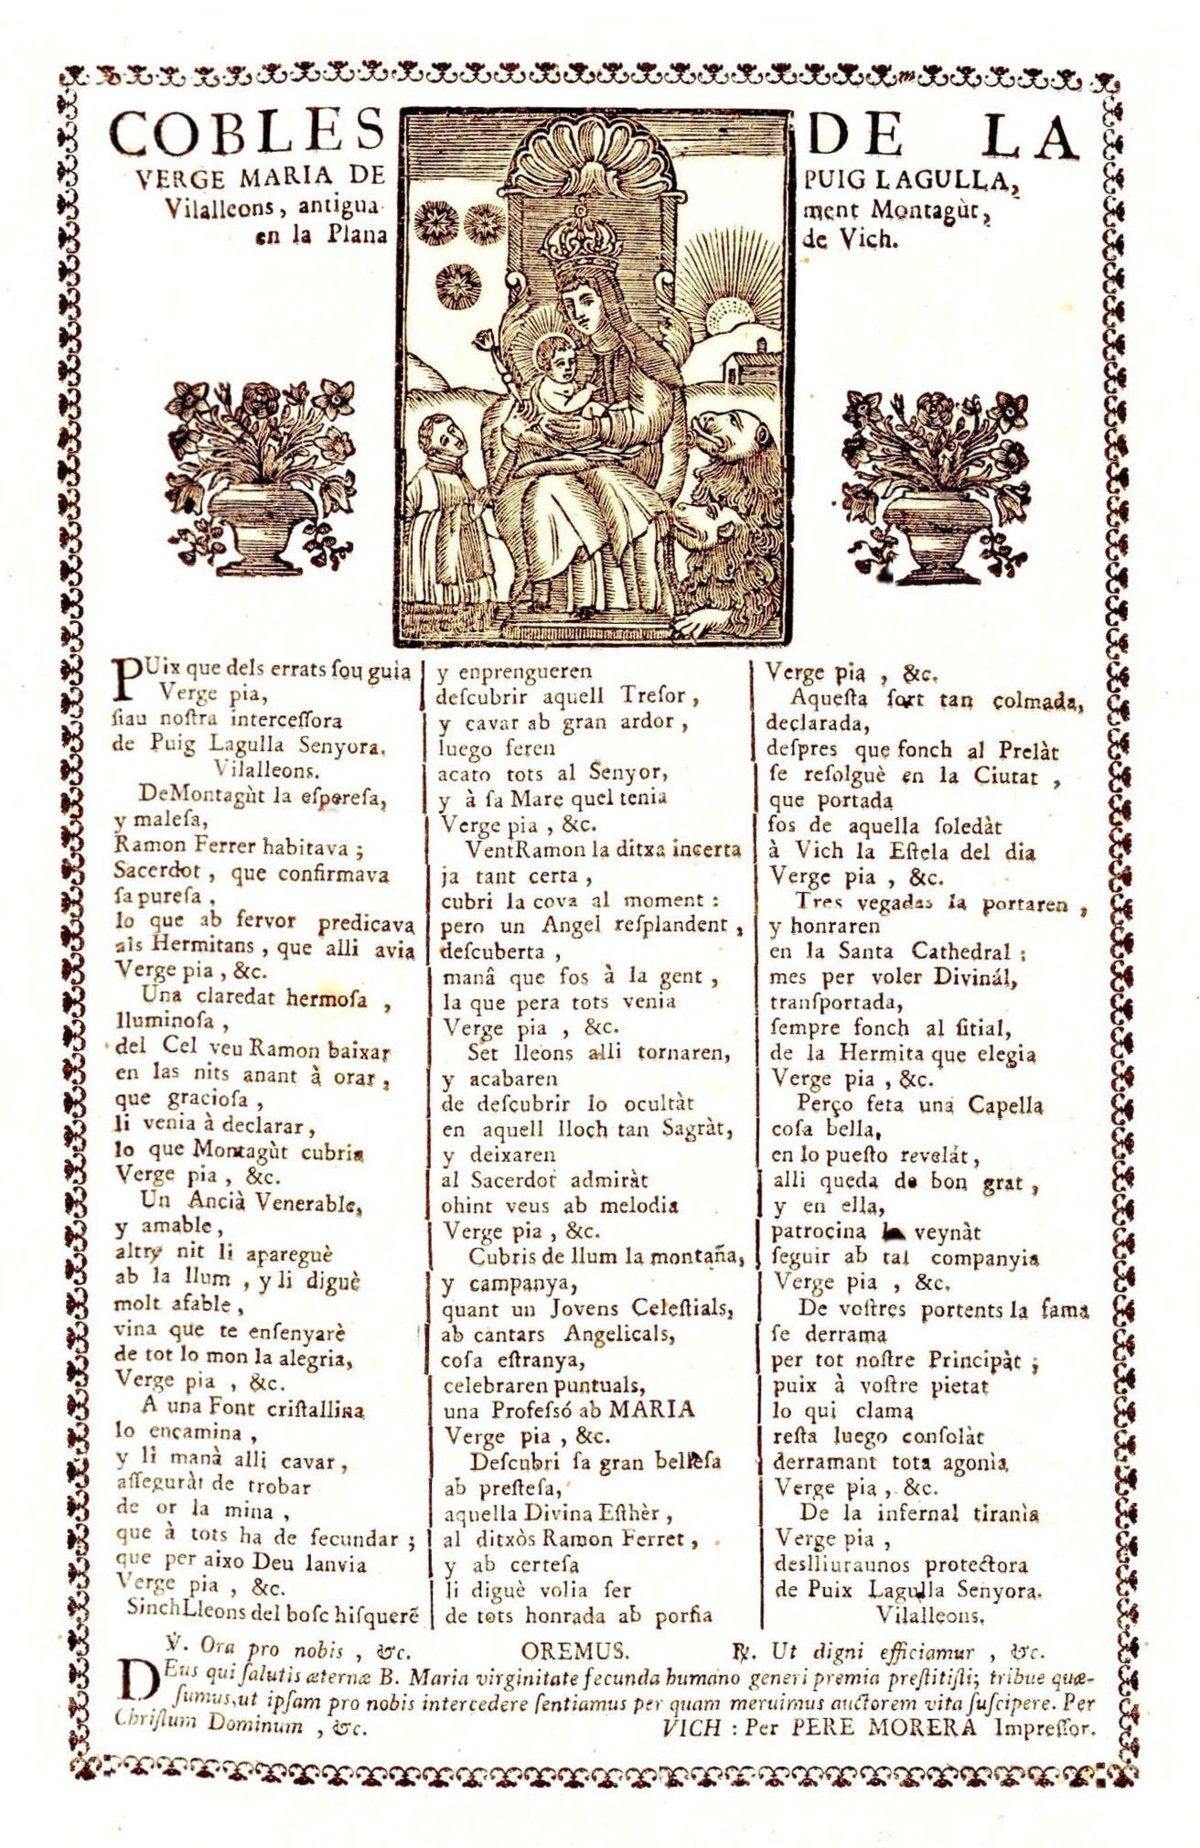 COBLES DE LA
VERGE MARIA DE PUIG LAGULLA,
Vilalleons, antigua ment Montagùt,
en la Plana de Vich.
PUix que dels errats ſou guia
Verge pia,
ſiau noſtra interceſſora
de Puig Lagulla Senyora.
Vilalleons.
DeMontagùt la eſpereſa,
y maleſa,
Ramon Ferrer habitava ;
Sacerdot , que confirmava
ſa pureſa ,
lo que ab fervor predicava
als Hermitans , que alli avia
Verge pia , &c.
Una claredat hermoſa ,
lluminoſa ,
del Cel veu Ramon baixar
en las nits anant à orar ,
que gracioſa ,
li venia à declarar ,
lo que Montagùt cubria
Verge pia , &c.
Un Ancià Venerable,
y amable ,
altry nit li apareguè
ab la llum , y li diguè
molt afable ,
vina que te enſenyarè
de tot lo mon la alegria,
Verge pia , &c.
A una Font criſtallina
lo encamina ,
y li manà alli cavar ,
aſſeguràt de trobar
de or la mina ,
que à tots ha de fecundar ;
que per aixo Deu lanvia
Verge pia , &c.
SinchLleons del boſc hiſquerẽ
y enprengueren
deſcubrir aquell Treſor ,
y cavar ab gran ardor ,
luego feren
acato tots al Senyor,
y à ſa Mare quel tenia
Verge pia , &c.
VentRamon la ditxa incerta
ja tant certa ,
cubri la cova al moment :
pero un Angel reſplandent ,
deſcuberta ,
manâ que fos à la gent ,
la que pera tots venia
Verge pia , &c.
Set lleons alli tornaren,
y acabaren
de deſcubrir lo ocultàt
en aquell lloch tan Sagràt,
y deixaren
al Sacerdot admiràt
ohint veus ab melodia
Verge pia , &c.
Cubris de llum la montaña,
y campanya,
quant un Jovens Celeſtials,
ab cantars Angelicals,
coſa eſtranya,
celebraren puntuals,
una Profeſsó ab MARIA
Verge pia , &c.
Deſcubri ſa gran belleſa
ab preſteſa,
aquella Divina Eſthèr ,
al ditxòs Ramon Ferret ,
y ab certeſa
li diguè volia ſer
de tots honrada ab porfia
Verge pia , &c.
Aqueſta ſort tan colmada,
declarada,
deſpres que fonch al Prelàt
ſe reſolguè en la Ciutat ,
que portada
fos de aquella ſoledàt
à Vich la Eſtela del dia
Verge pia , &c.
Tres vegadas la portaren ,
y honraren
en la Santa Cathedral ;
mes per voler Divinál,
tranſportada,
ſempre fonch al ſitial,
de la Hermita que elegia
Verge pia , &c.
Perço feta una Capella
coſa bella,
en lo pueſto revelát ,
alli queda de bon grat ,
y en ella,
patrocina la veynàt
ſeguir ab tal companyia
Verge pia , &c.
De voſtres portents la fama
ſe derrama
per tot noſtre Principàt ;
puix à voſtre pietat
lo qui clama
reſta luego conſolàt
derramant tota agonìa
Verge pia , &c.
De la infernal tiranìa
Verge pia ,
deslliuraunos protectora
de Puix Lagulla Senyora.
Vilalleons.
℣. Ora pro nobis , &c. OREMUS. ℟. Ut digni efficiamur , &c.
DEus qui ſalutis æternæ B. Maria virginitate fecunda humano generi premia preſtitiſti; tribue quæ-
ſumus, ut ipſam pro nobis intercedere ſentiamus per quam meruimus auctorem vita ſuſcipere. Per
Chriſtum Dominum , &c. VICH : Per PERE MORERA Impreſſor.